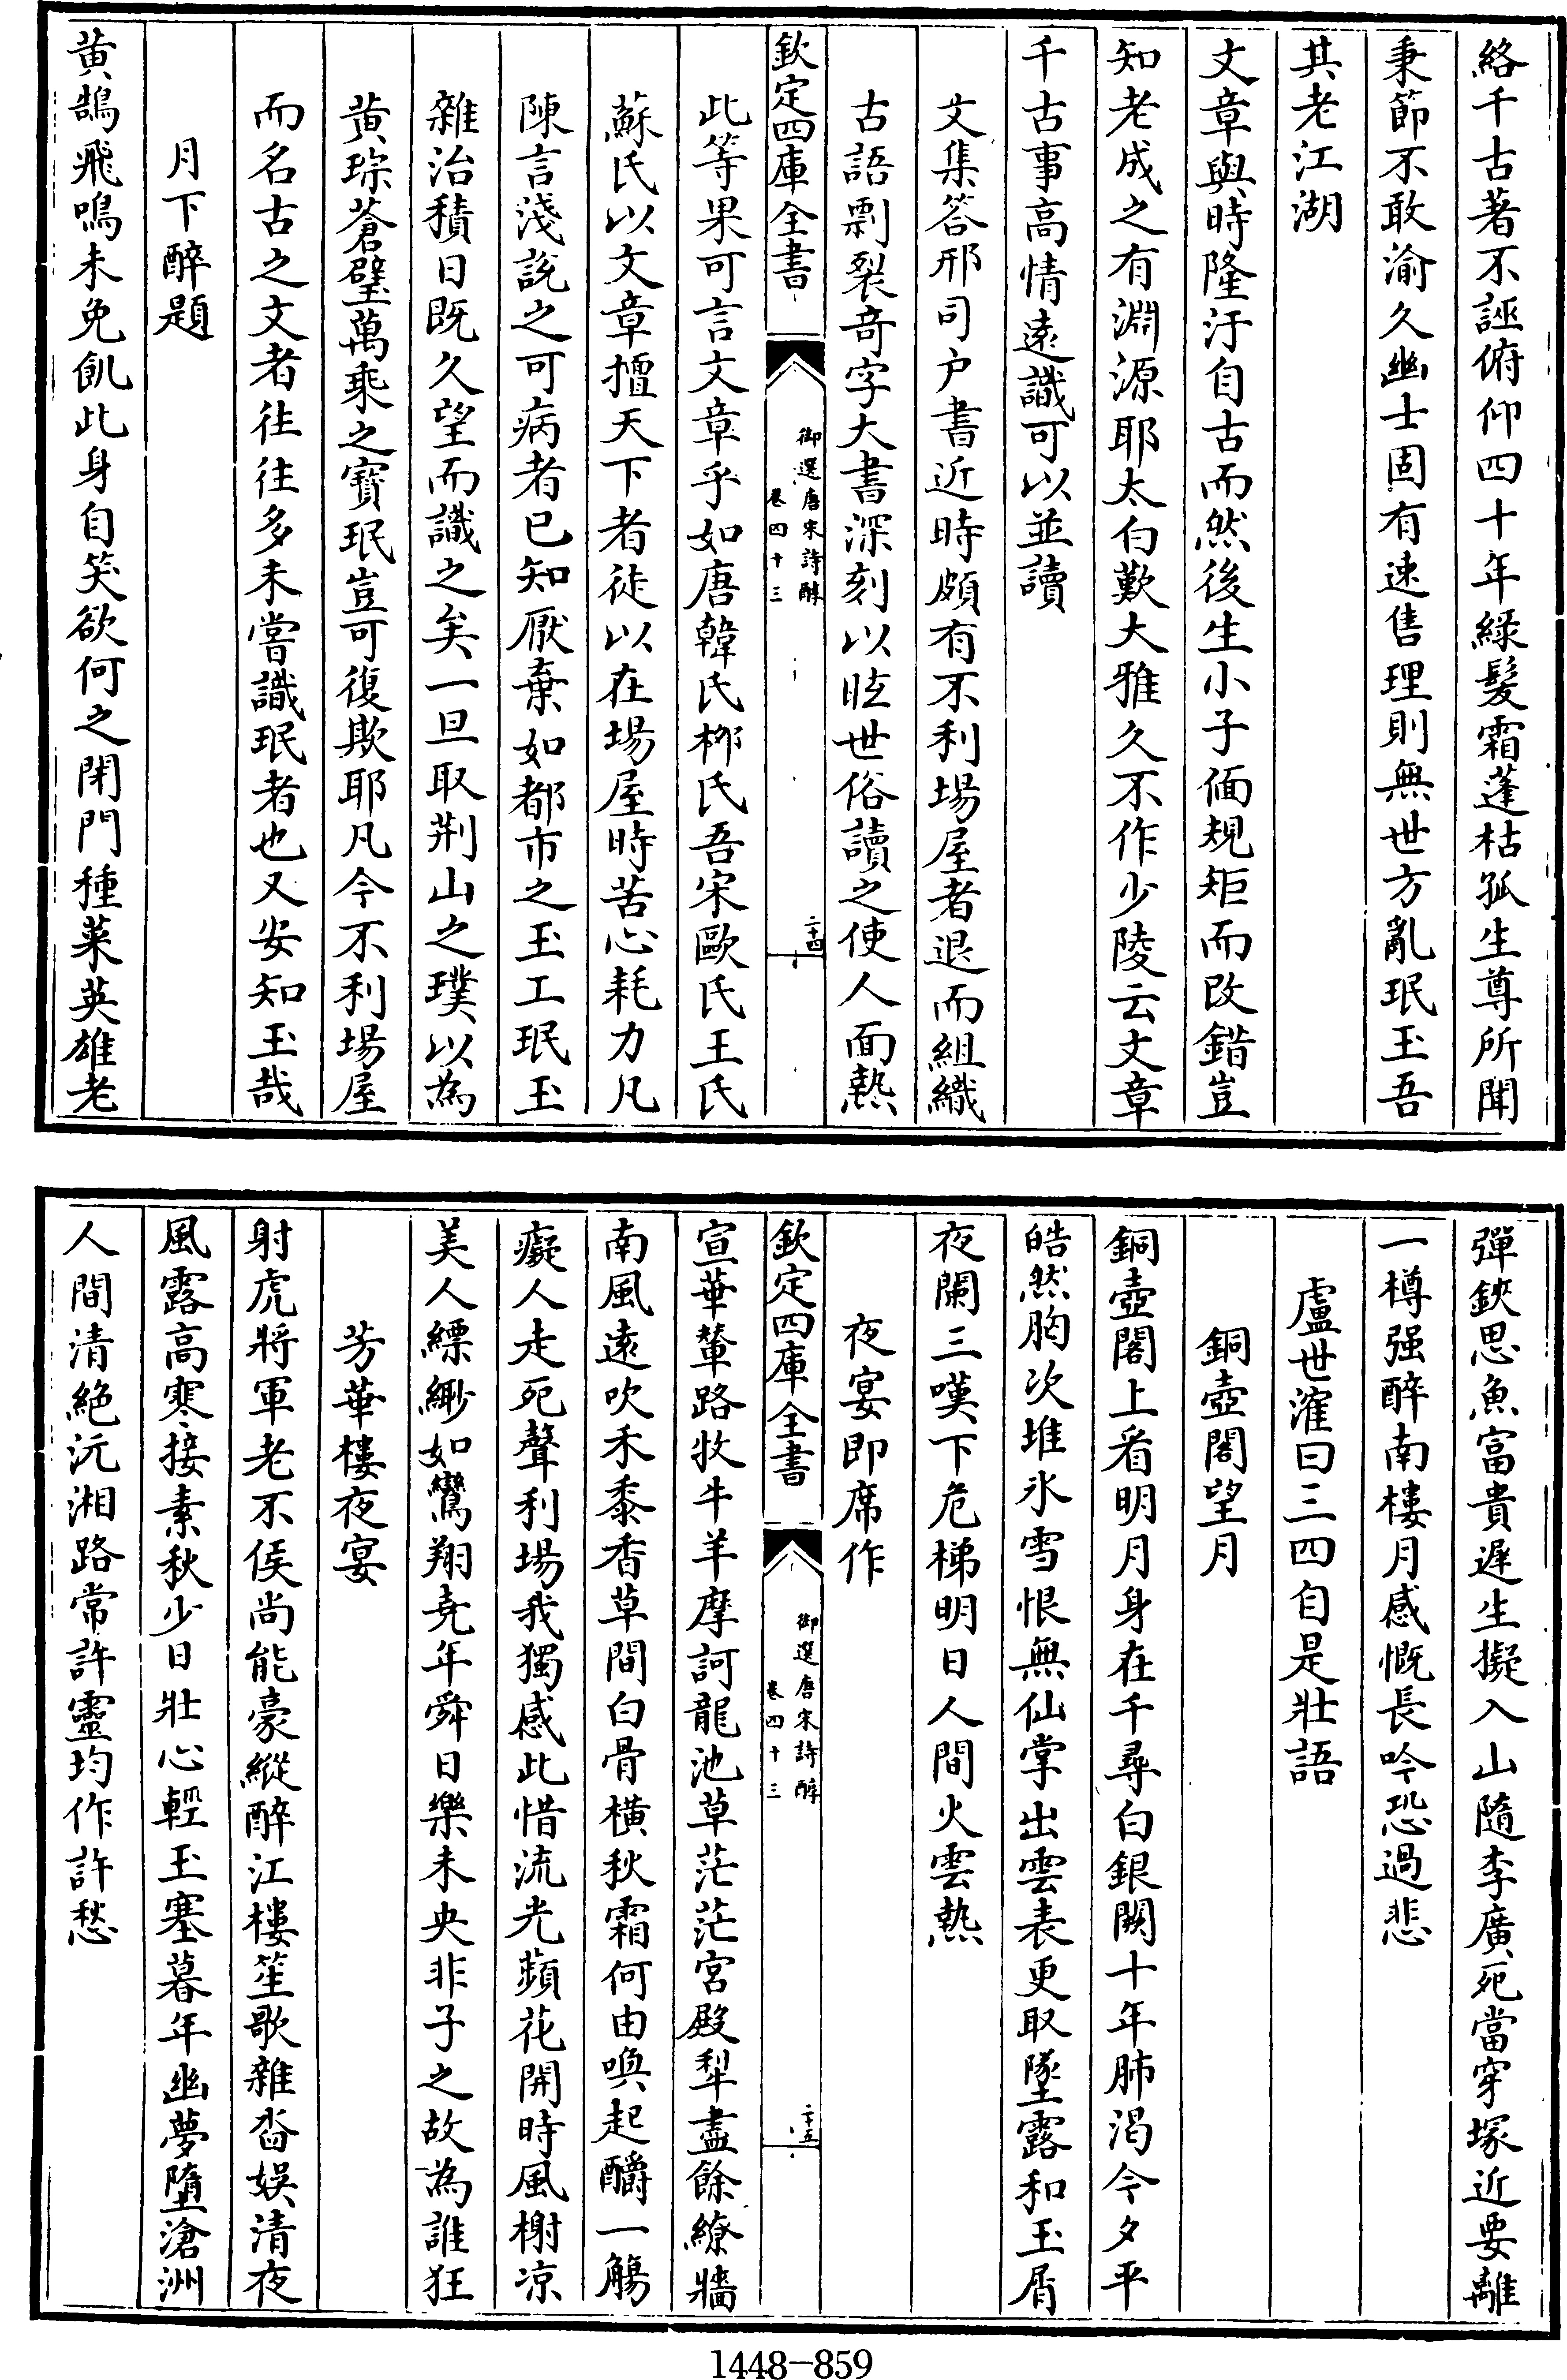 絡千古著不誣俯仰四十年綠髮霜蓬枯孤生尊所聞
秉節不敢渝久幽士固有速售理則無世方亂珉玉吾
其老江湖
文章與時隆汙自古而然後生小子偭規矩而改錯豈
知老成之有淵源耶太白歎大雅久不作少陵云文章
千古事高情遠識可以並讀
文集答邢司户書近時頗有不利場屋者退而組織
古語剽裂竒字大書深刻以眩世俗讀之使人面熱
欽定四庫全書
御選唐宋詩醇
卷四十三
二十四
此等果可言文章乎如唐韓氏栁氏吾宋歐氏王氏
蘇氏以文章擅天下者徒以在場屋時苦心耗力凡
陳言淺說之可病者已知厭棄如都市之玉工珉玉
雜治積日既久望而識之矣一旦取荆山之璞以為
黄琮蒼璧萬乘之寳珉豈可復欺耶凡今不利場屋
而名古之文者往往多未嘗識珉者也又安知玉哉
月下醉題
黄鵠飛鳴未免飢此身自笑欲何之閉門種菜英雄老
彈鋏思魚富貴遲生擬入山隨李廣死當穿塚近要離
一樽强醉南樓月感慨長吟恐過悲
盧世㴶曰三四自是壯語
銅壺閣望月
銅壺閣上看明月身在千尋白銀闕十年肺渴今夕平
皓然胸次堆氷雪恨無仙掌出雲表更取墜露和玉屑
夜闌三嘆下危梯明日人間火雲熱
夜宴即席作
欽定四庫全書
御選唐宋詩醇
卷四十三
二十五
宣華輦路牧牛羊摩訶龍池草茫茫宮殿犁盡餘繚牆
南風遠吹禾黍香草間白骨橫秋霜何由喚起釂一觴
癡人走死聲利場我獨感此惜流光蘋花開時風榭凉
美人縹緲如鸞翔堯年舜日樂未央非子之故為誰狂
芳華樓夜宴
射虎將軍老不侯尚能豪縱醉江樓笙歌雜沓娛清夜
風露高寒接素秋少日壯心輕玉塞暮年幽夢墮滄洲
人間清絶沅湘路常許靈均作許愁
1448—859